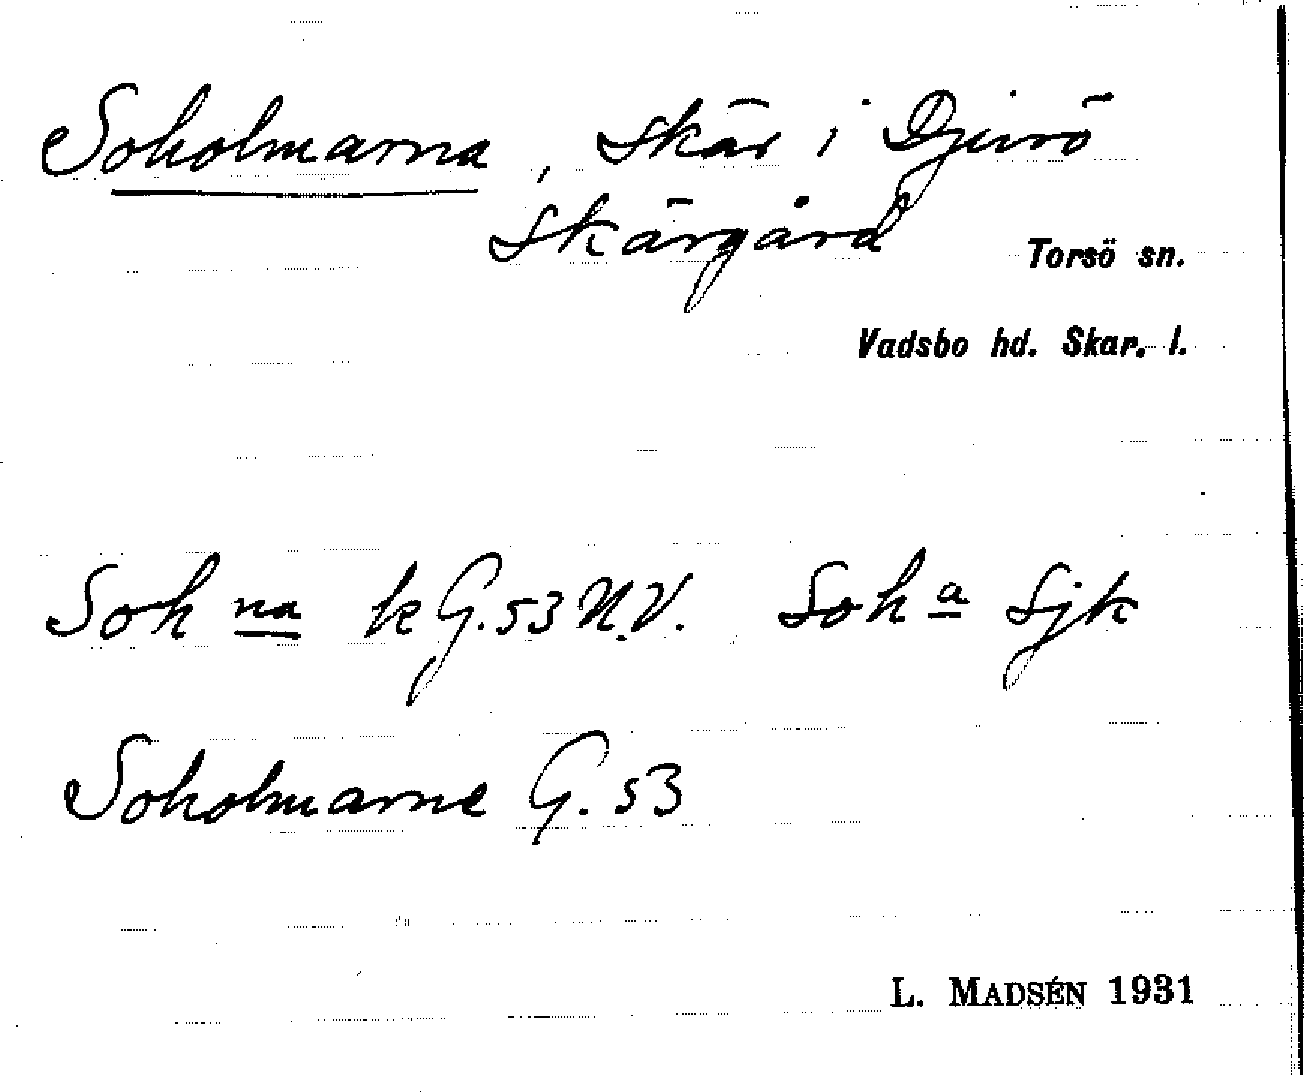 Soholmarna, skär i Djurö
skärgård
Torsö sn.
Vadsbo hd. Skar. l.
Soh na k G. 53 N.V. Soh a Sjk
Soholmarne G. 53
L. MADSÉN 1931